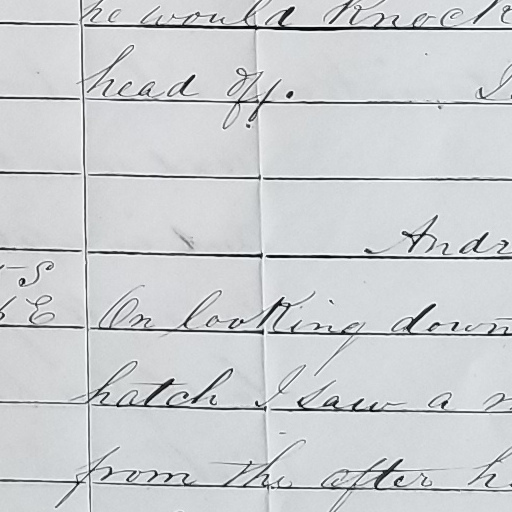 he would Knock
head off.
Andr
S
E On looking down
hatch I saw a
from the after h